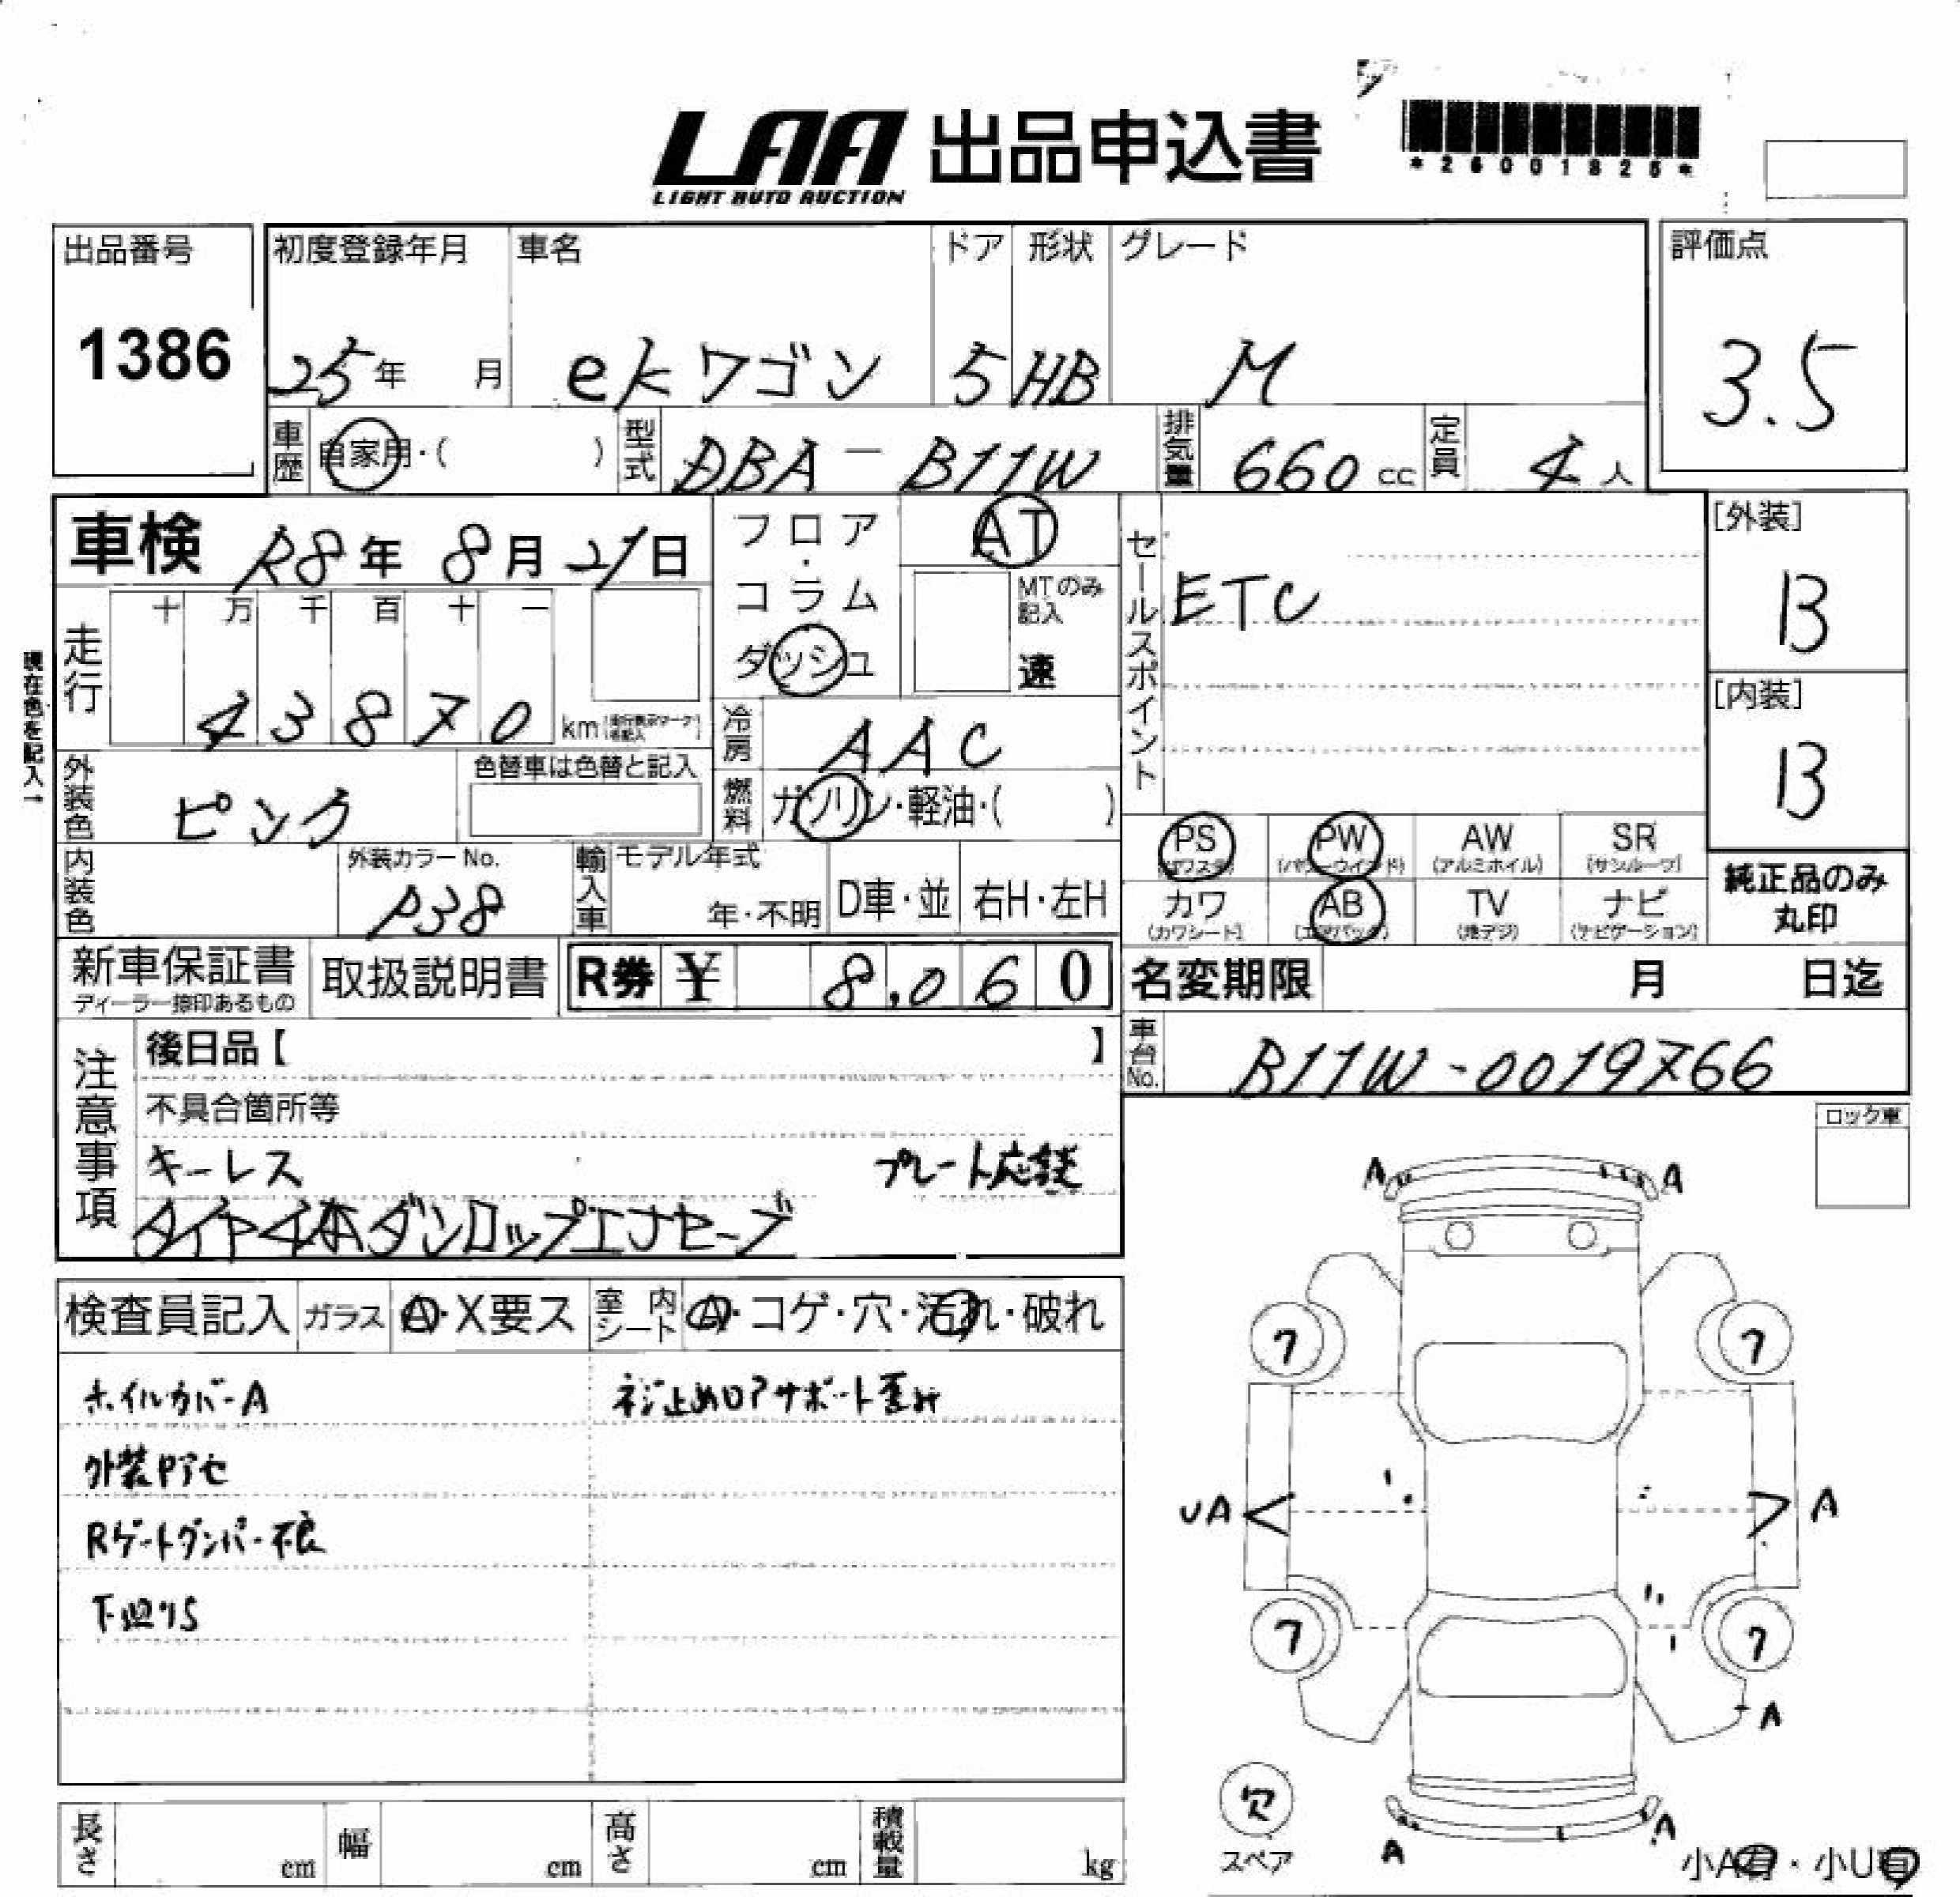 LAA 出品申込書
LIGHT AUTO AUCTION
*26001825*
出品番号
1386
初度登録年月
25年 月
車名
ekワゴン
ドア
5
形状
HB
グレード
M
評価点
3.5
車歴
自家用・( )
型式
DBA-B11W
排気量
660 cc
定員
4人
車検 R8年 8月 21日
フロア・コラム
ダッシュ
AT
MTのみ記入
速
セールスポイント
ETC
[外装]
B
[内装]
B
現在色を記入→
走行
十 万 千 百 十 一
4 3 8 7 0 km
冷房
AAC
燃料
ガソリン・軽油・( )
外装色
ピンク
色替車は色替と記入
内装色
外装カラーNo.
P38
輸入車
モデル年式
年・不明
D車・並
右H・左H
PS
(パワステ)
PW
(パワーウインド)
AW
(アルミホイル)
SR
(サンルーフ)
カワ
(カワシート)
AB
(エアバック)
TV
(地デジ)
ナビ
(ナビゲーション)
純正品のみ
丸印
新車保証書
ディーラー捺印あるもの
取扱説明書
R券 ¥ 8,060
名変期限 月 日迄
車台No.
B11W-0019766
注意事項
後日品【 】
不具合箇所等
キーレス プレート応談
タイヤ4本ダンロップエナセーブ
ロック車
検査員記入
ガラス
A・X要ス
室内シート
A・コゲ・穴・汚れ・破れ
ホイルカバーA
ネジ止めロアサポート歪み
外装Pアセ
Rゲートダンパー不良
下回りS
A A
7 7
UA A
7 7
A
欠
スペア
A A
小A有・小U有
長さ cm
幅 cm
高さ cm
積載量 kg